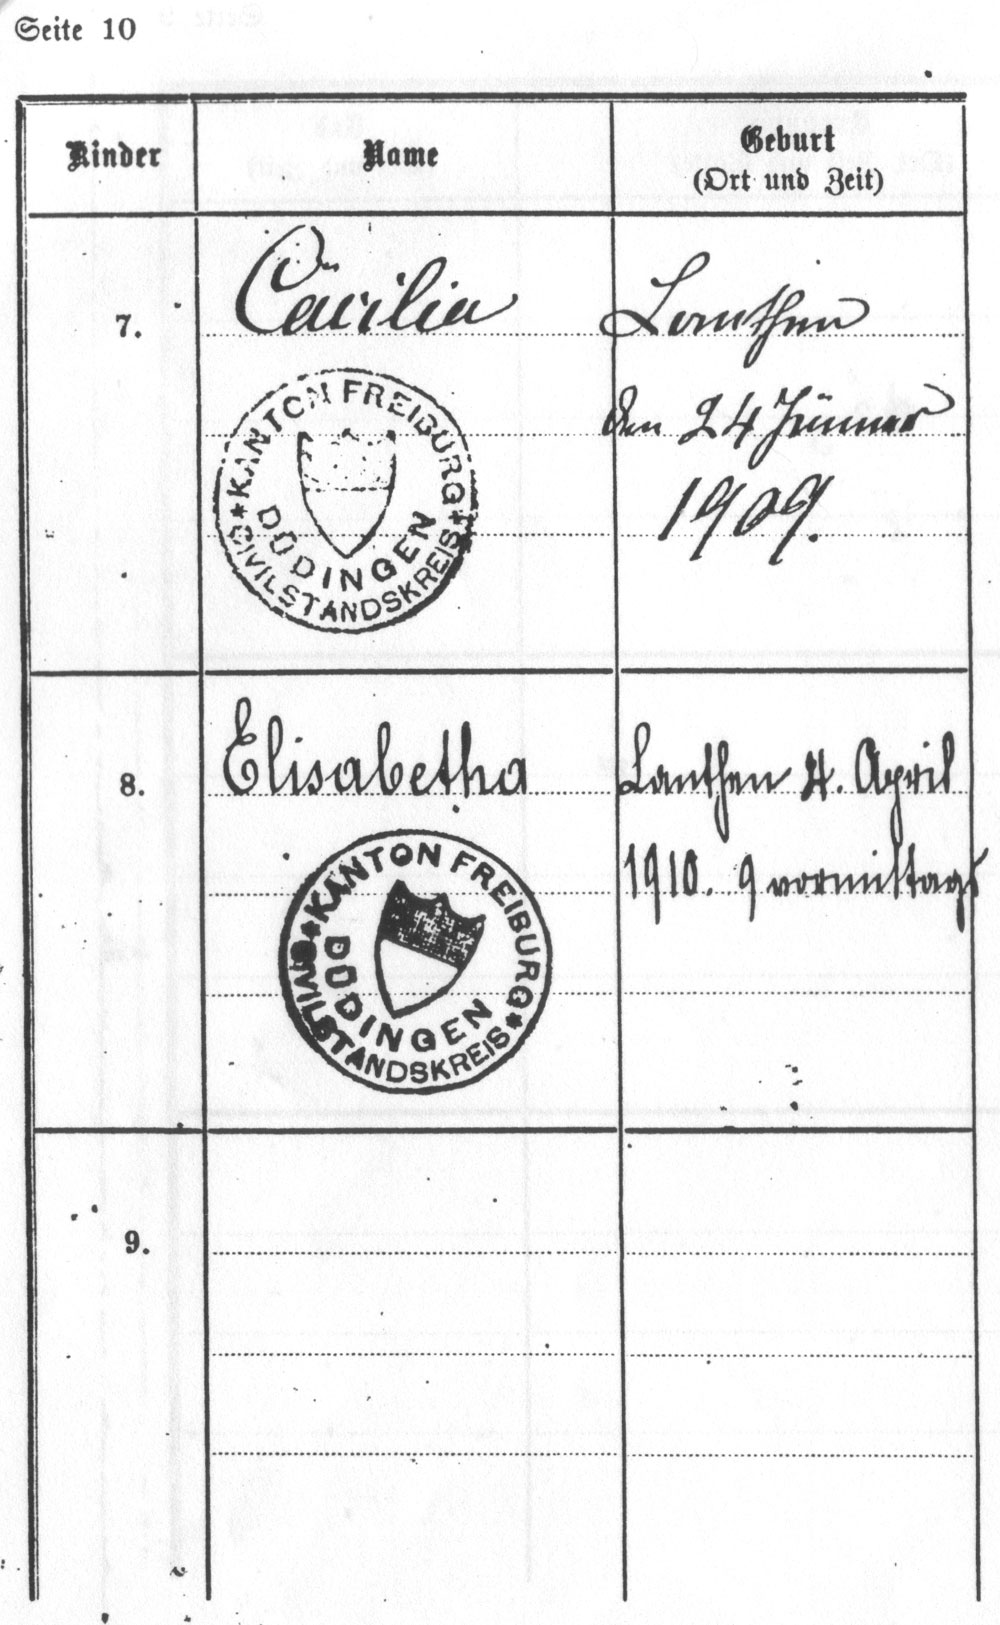 Seite 10
Kinder
Name
Geburt
(Ort und Zeit)
7.
Cäcilia
Lanthen
den 24 Jänner
1909.
KANTON FREIBURG
DÜDINGEN
CIVILSTANDSKREIS
8.
Elisabetha
Lanthen 4. April
1910. 9 vormittags
KANTON FREIBURG
DÜDINGEN
CIVILSTANDSKREIS
9.